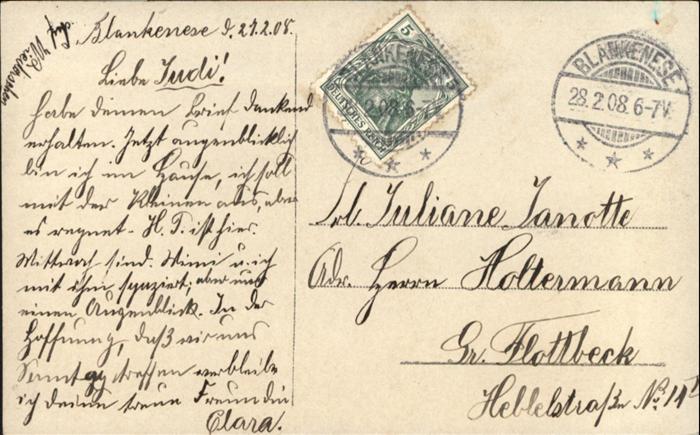 Auf Wiedersehn
Blankenese d. 27.2.08.
Liebe Judi!
Habe deinen Brief dankend
erhalten. Jetzt augenblicklich
bin ich im Hause, ich soll
mit der Kleinen aus, aber
es regnet - H. T. ist hier.
Mittwoch sind Mimi u. ich
mit ihm spaziert; aber nur
einen Augenblick. In der
Hoffnung, daß wir uns
Sonntag treffen verbleibe
ich deine treue Freundin
Clara.
5
DEUTSCHES REICH
BLANKENESE
2.08.6-7
BLANKENESE
28.2.08.6-7V.
Frl. Juliane Janotte
Adr. Herrn Holtermann
Gr. Flottbeck
Hebbelstraße No. 11